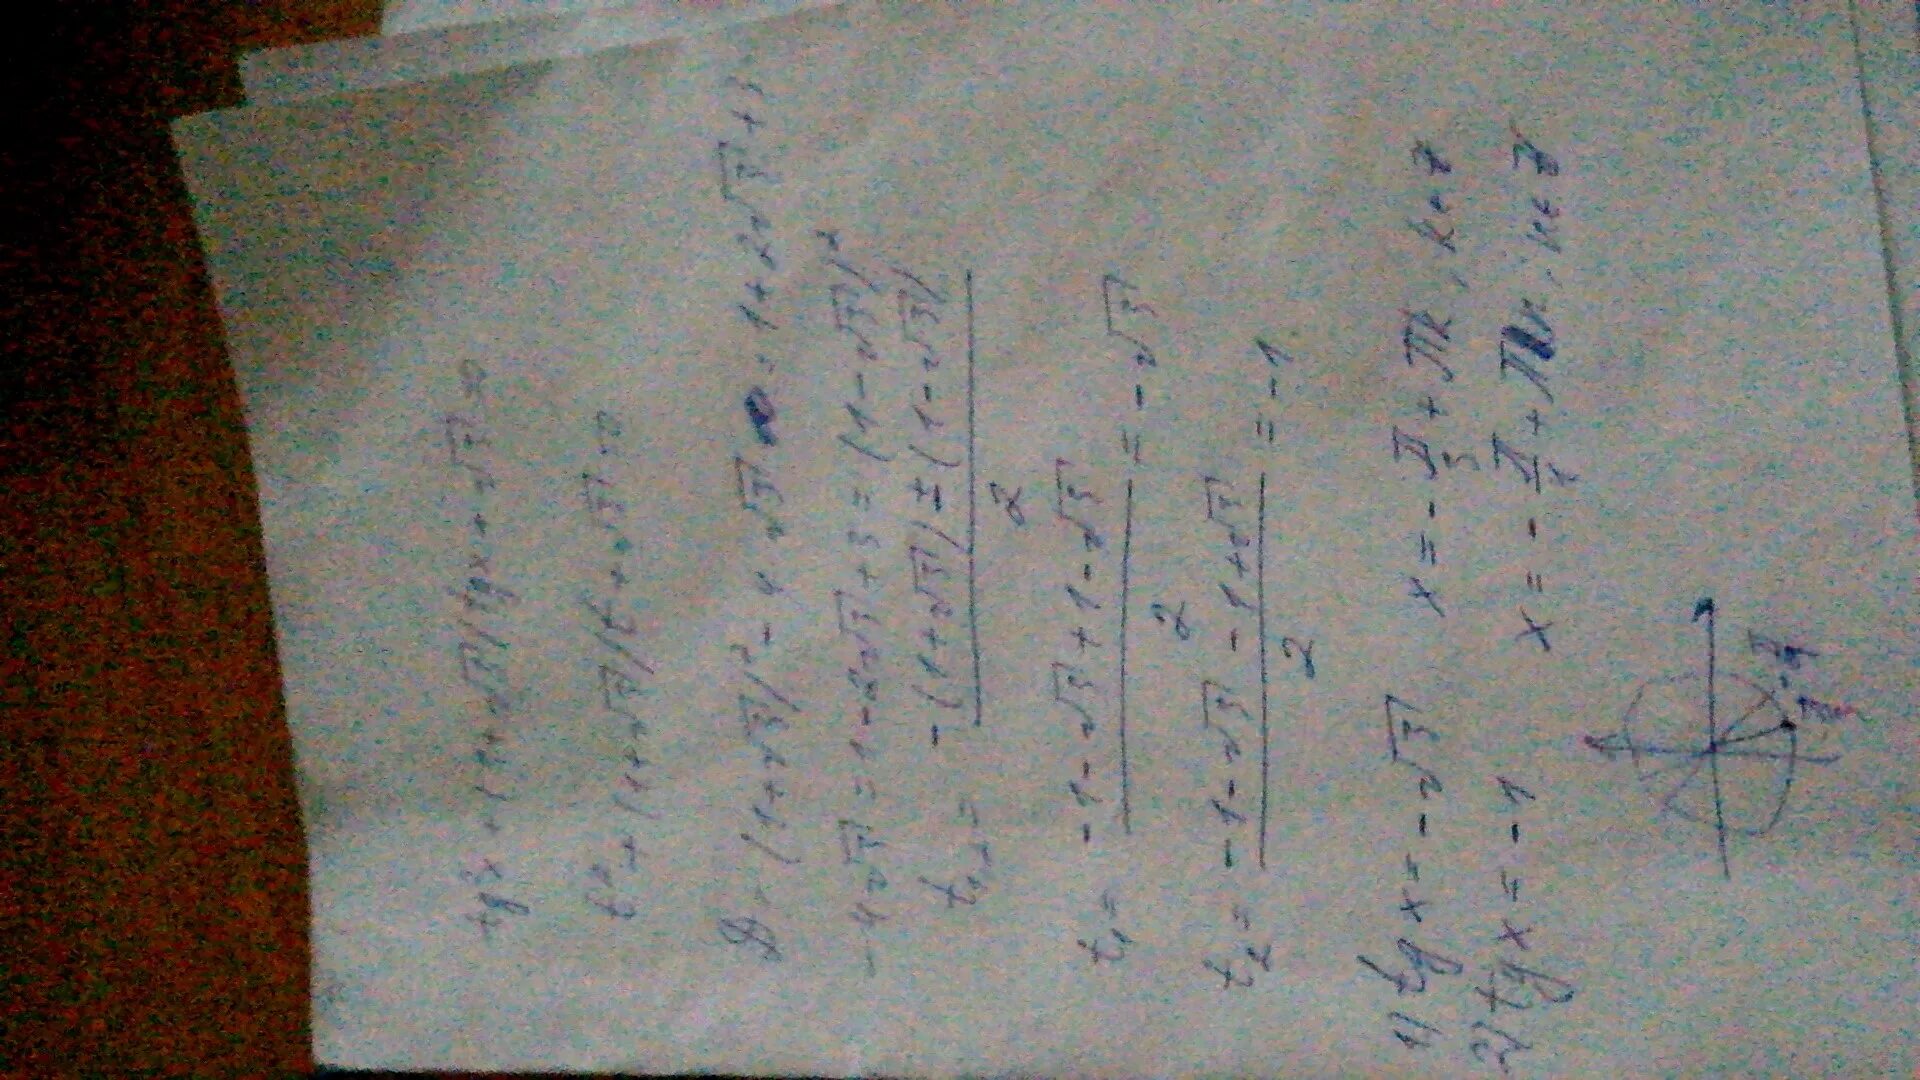 tg²x + (1+√3) tgx + √3 = 0
t² + (1+√3) t + √3 = 0
D = (1+√3)² - 4√3 = 1 + 2√3 + 3
- 4√3 = 1 - 2√3 + 3 = (1-√3)²
t₁,₂ = -(1+√3) ± (1-√3) / 2
t₁ = -1-√3+1-√3 / 2 = -√3
t₂ = -1-√3-1+√3 / 2 = -1
1) tg x = -√3 x = -π/3 + πk, k∈Z
2) tg x = -1 x = -π/4 + πk, k∈Z